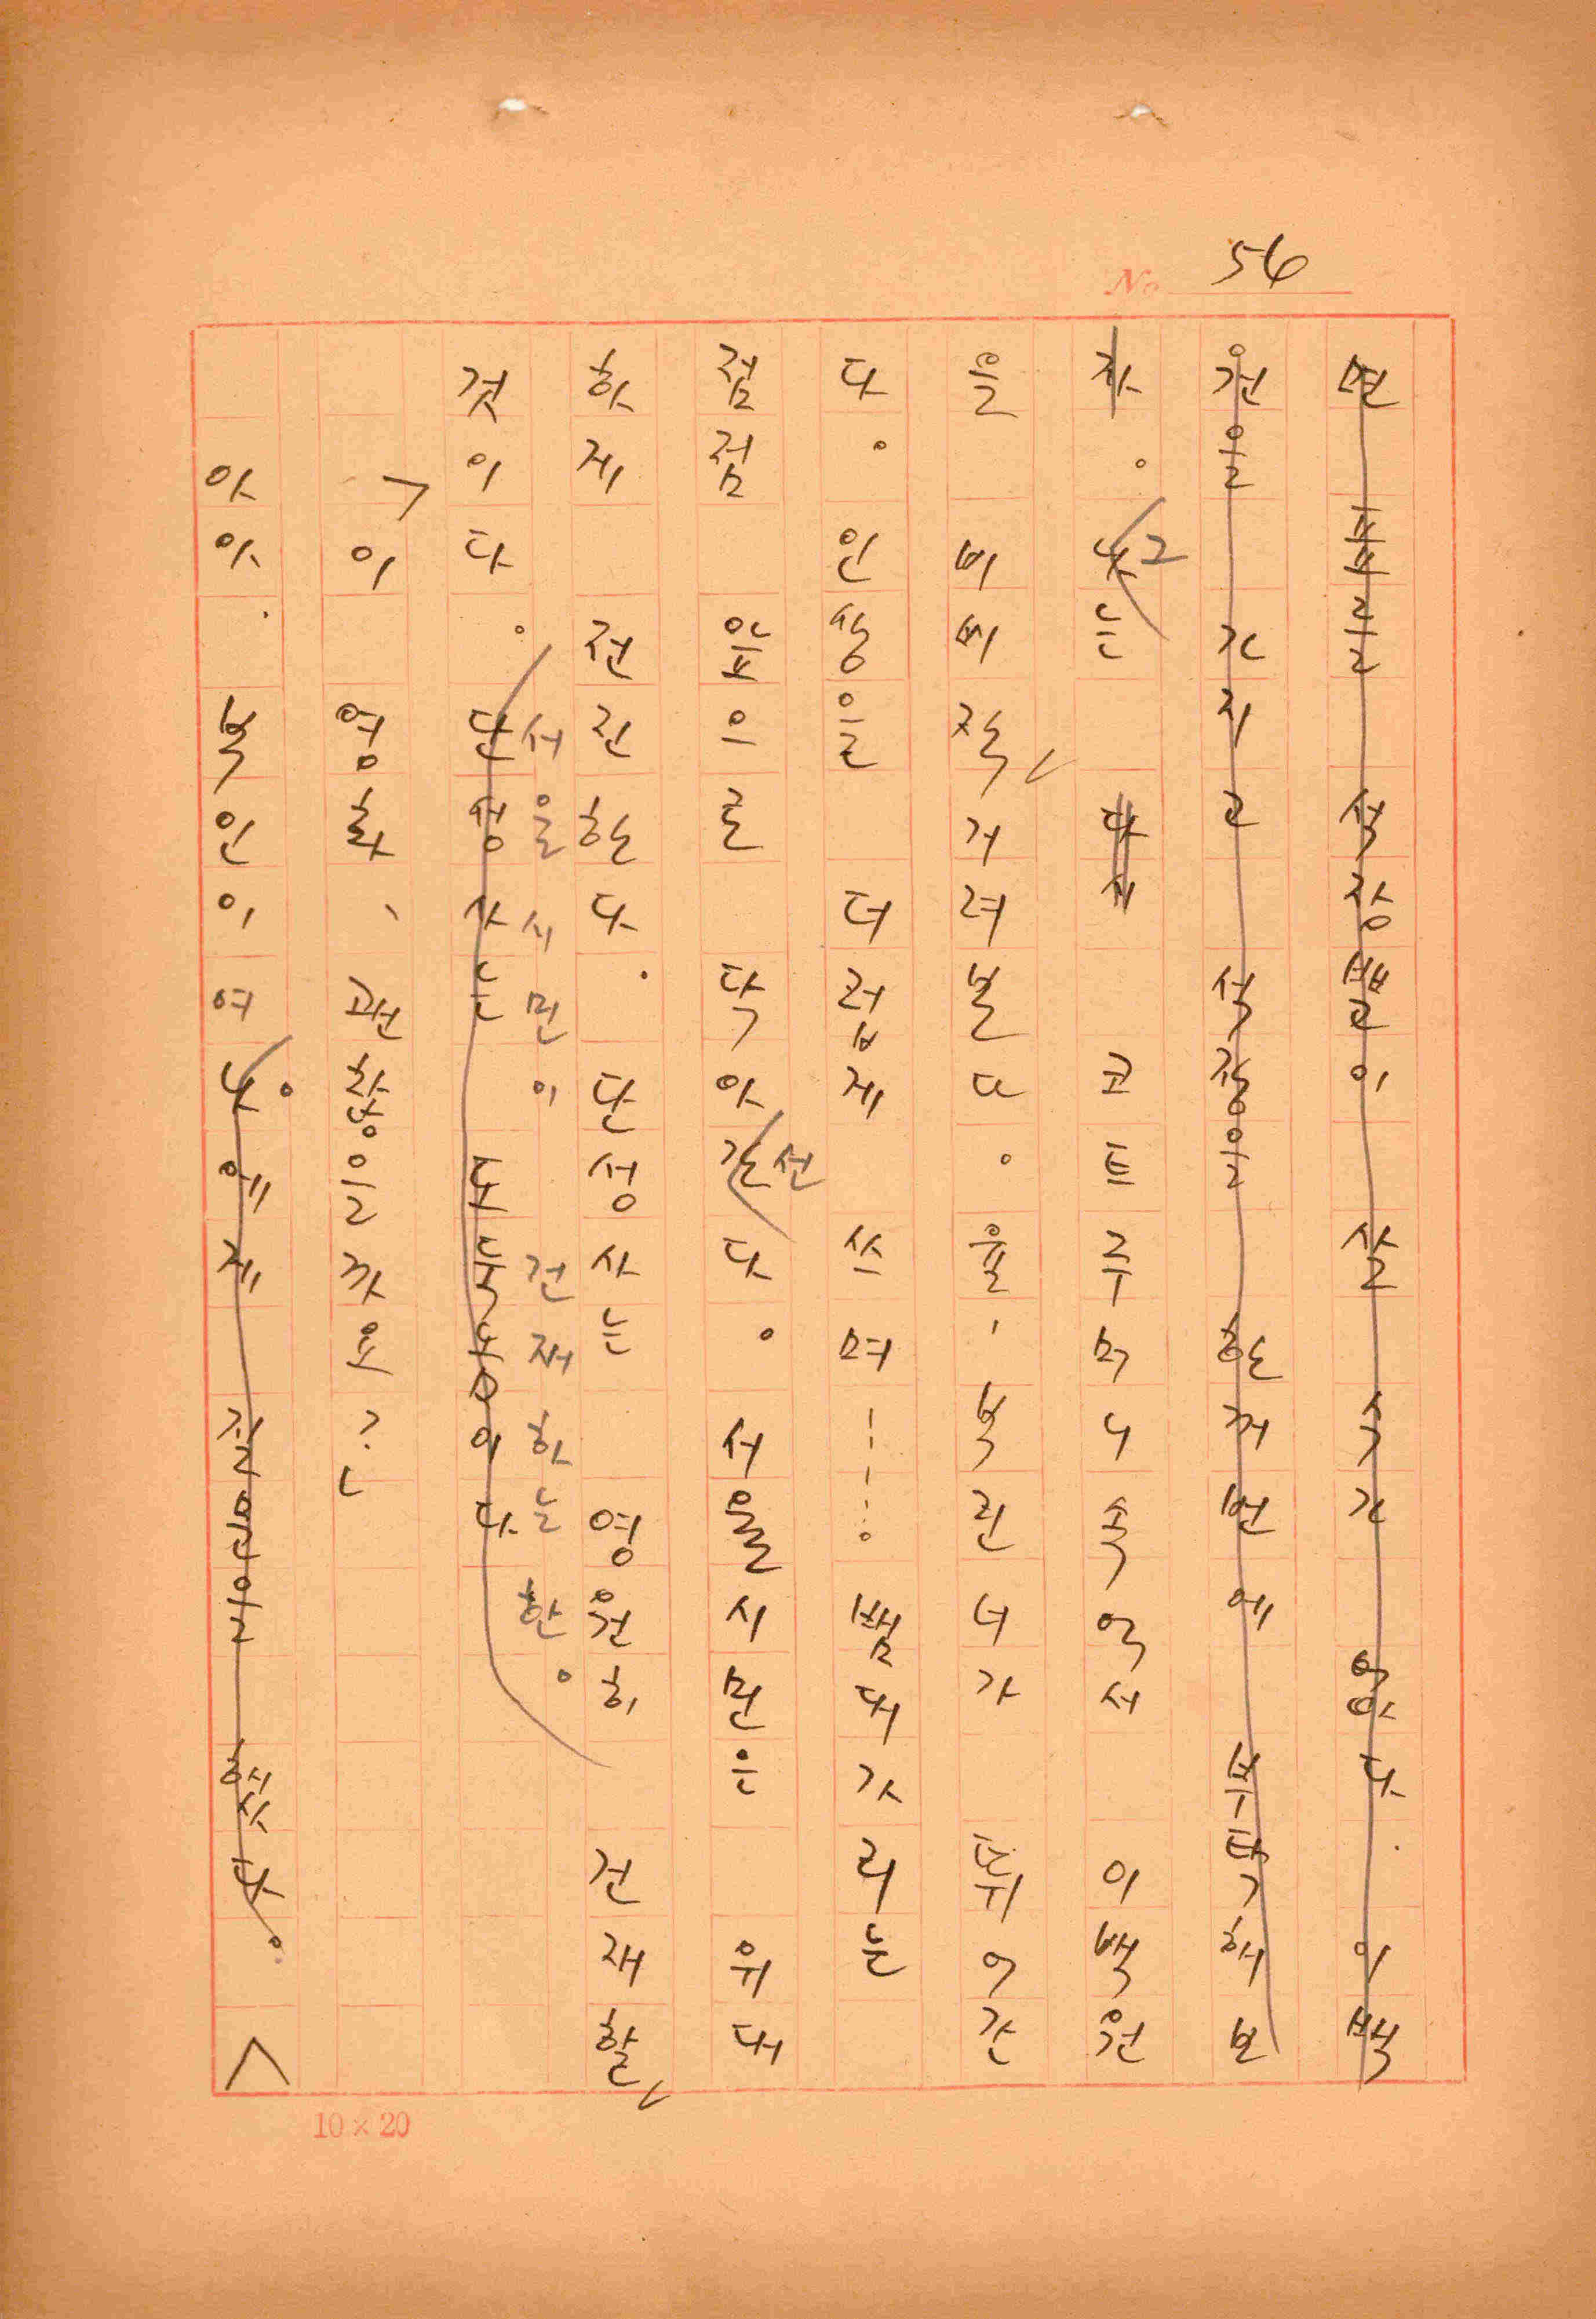 No 56
면 푸른 색장 이 살 수가 있다. 이백
원을 가지고 색장을 한꺼번에 부탁해 보
자. 나그는 다시 코트 주머니 속에서 이백원
을 비비적거려 본다. 율, 복권 너가 뛰어간
다. 인생을 더럽게 쓰며……. 뱀대가리는
점점 앞으로 닥아간선다. 서울시민은 위대
하게 전진한다. 단성사는 영원히 건재할
서울시민이 건재하는 한.
것이다. 단성사는 도둑놈이다
이 영화, 괜찮을까요?
아아. 복인이여. 나에게 했다.
10×20